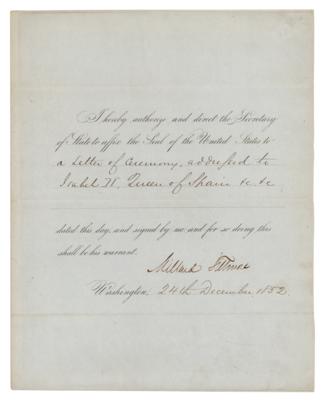 I hereby authorize and direct the Secretary
of State to affix the Seal of the United States to
a Letter of Ceremony, addressed to
Isabel II, Queen of Spain &c &c
dated this day, and signed by me: and for so doing this
shall be his warrant.
Millard Fillmore
Washington, 24th December 1852.